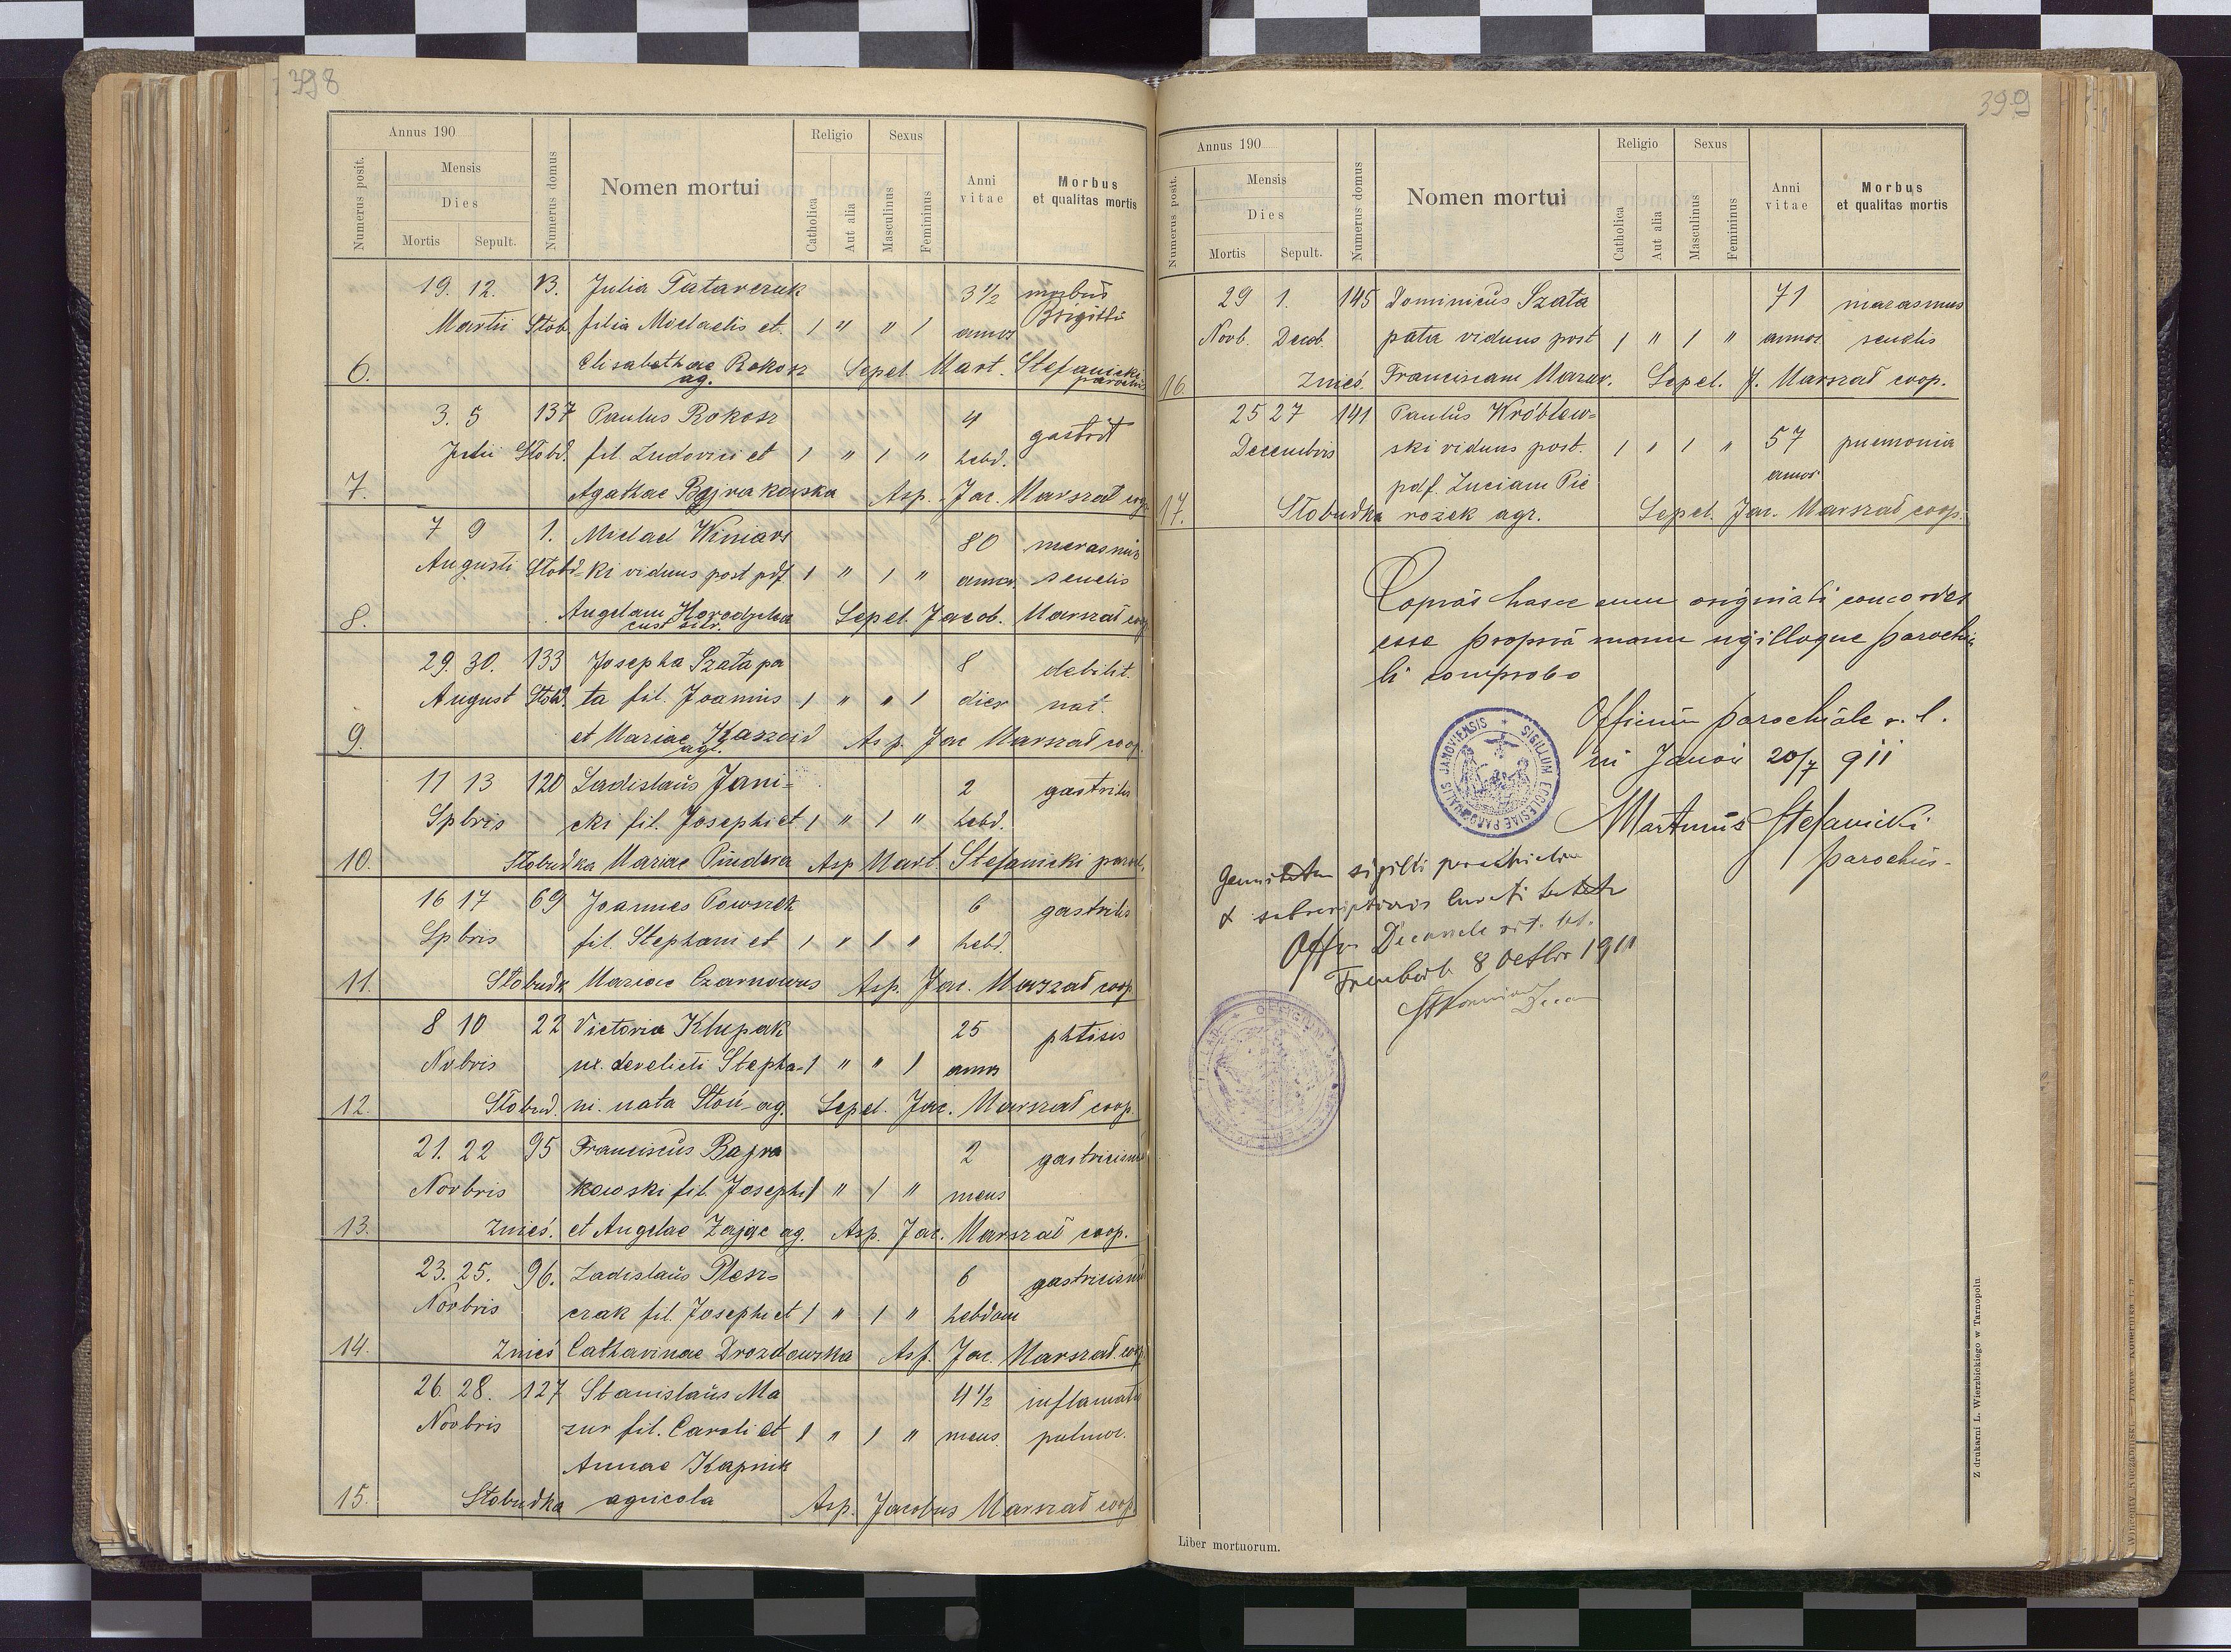 398
Annus 190
Numerus posit.
Mensis
Dies
Mortis Sepult.
Numerus domus
Nomen mortui
Religio
Catholica
Aut alia
Sexus
Masculinus
Femininus
Anni vitae
Morbus et qualitas mortis
19. 12. Julia Tatarczuk 3 1/2 morbus
Martii Słob. filia Michaelis et 1 " " 1 annos
6. Elisabethae Rokosz Sepel. Mart. Stefanicki
ag. parochus
3. 5 137 Paulus Rokosz 4
Julii Słobd. fil. Ludovici et 1 " 1 " hebd.
7. Agathae Bajrakowska Asp. Jac. Marszał coop.
7 9 1. Michael Winiars 80
Augusti Słobd. ki viduus post pdf 1 " 1 " annor. senelis
8. Angelam Sepel. Jacob. Marszał coop.
29. 30. 133 Josepha Szatapa 8 debilit.
August Słobd. ta fil. Joannis 1 " " 1 dies nat.
9. et Mariae Asp. Jac Marszał coop.
agr.
11 13 120 Ladislaus Jani= 2 gastritis
Spbris cki fil. Josephi et 1 " 1 " hebd.
10. Słobudka Mariae Pindera Asp Mart. Stefanicki paroch.
16 17 69 Joannes Powszek 6 gastritis
Spbris fil. Stephani et 1 " 1 " hebd.
11. Słobudk Mariae Asp. Jac. Marszał coop
8 10 22 Victoria Klupak 25 phtisis
Nvbris ux. derelicti Stepha- 1 " " 1 annos
12. Słobud. ni. nata Słoń ag. Sepel. Jac. Marszał coop.
21. 22 95 Franciscus Bajra 2 gastricismus
Novbris kowski fil. Josephi 1 " 1 " mens
13. Znieś. et Angelae Zając ag. Asp. Jac. Marszał coop.
23. 25. 96. Ladislaus Plesz= 6 gastricismus
Novbris czak fil. Josephi et 1 " 1 " hebdom
14. Znieś Catharinae Drozdowska Asp. Jac. Marszał. coop.
26. 28. 127 Stanislaus Ma 4 1/2 inflamatio
Novbris zur fil. Caroli et 1 " 1 " mens. pulmor.
Annae Kapnik
15. Słobudka agricola Asp. Jacobus Marszał coop.
399
Annus 190
Numerus posit.
Mensis
Dies
Mortis Sepult.
Numerus domus
Nomen mortui
Religio
Catholica
Aut alia
Sexus
Masculinus
Femininus
Anni vitae
Morbus et qualitas mortis
29 1. 145 Dominicus Szata 71 marasmus
Novb. Decob. pata viduus post 1 " 1 " annos senelis
16. Znieś. Franciscam Mazur. Sepel. J. Marszał coop.
25 27 141 Paulus Wróblew=
Decembris ski viduus post. 1 " 1 " 57 pnemonia
pdf. Luciam Pie annos
17. Słobudka rożek agr. Sepel. Jac. Marszał coop.
Copias hasce cum originali concordes
esse propria manu sigilloque parochia
li comprobo
Officium parochiale r. l.
in Janów 20/7 911
Martinus Stefanicki
parochus.
SIGILLUM ECCLESIAE PAROCHIALIS JANOVIENSIS
sigilli parochialis
et subscriptionis Curati
8 Octbr 1911
OFFICIUM
Liber mortuorum.
Z drukarni L. Wierzbickiego w Tarnopolu